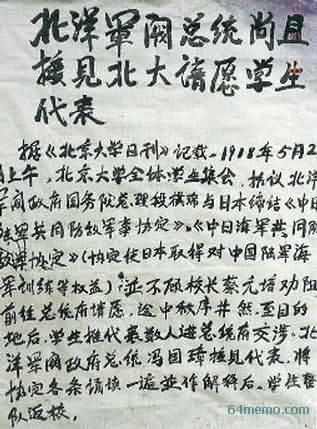 北洋軍阀总统尚且
接見北大请愿学生
代表
据《北京大学日刊》记载，1918年5月2
日上午，北京大学全体学生集会，抗议北洋
军阀政府国务院总理段祺瑞与日本缔结《中日
陆军共同防敌军事协定》、《中日海军共同防
敌军事协定》(协定使日本取得对中国陆军海
军训练等权益)並不顾校长蔡元培劝阻
前往总统府请愿，途中秩序井然，至目的
地后，学生推代表数人进总统府交涉，北
洋军阀政府总统冯国璋接見代表，将
协定各条诵读一遍並作解释后，学生整
队返校。
64memo.com